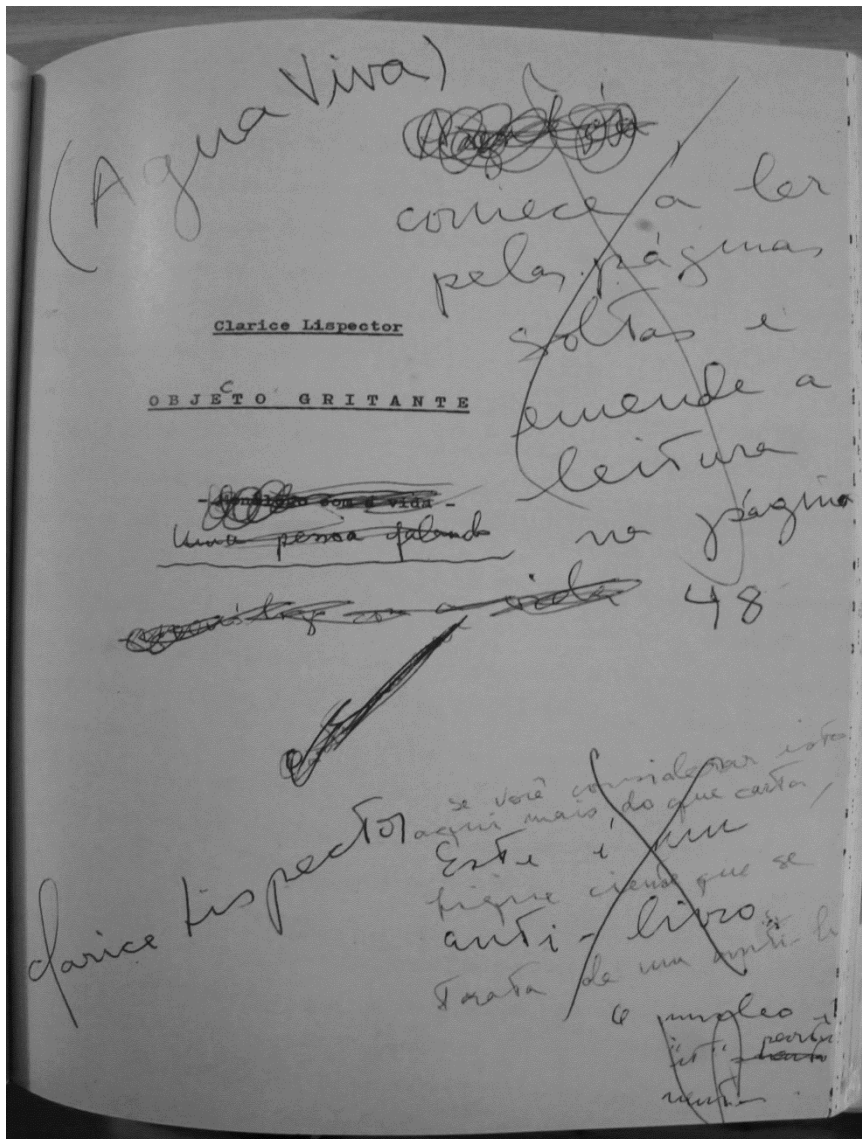 (Agua Viva)
comece a ler
pelas páginas
soltas e
emende a
leitura
na página
48
Clarice Lispector
OBJECTO GRITANTE
- com a vida -
Uma pessoa falando
a vida
Clarice Lispector
se você considerar isto
aqui mais do que carta,
Este é um
fique ciente que se
anti-livro.
trata de um anti-li
O núcleo é
"it"